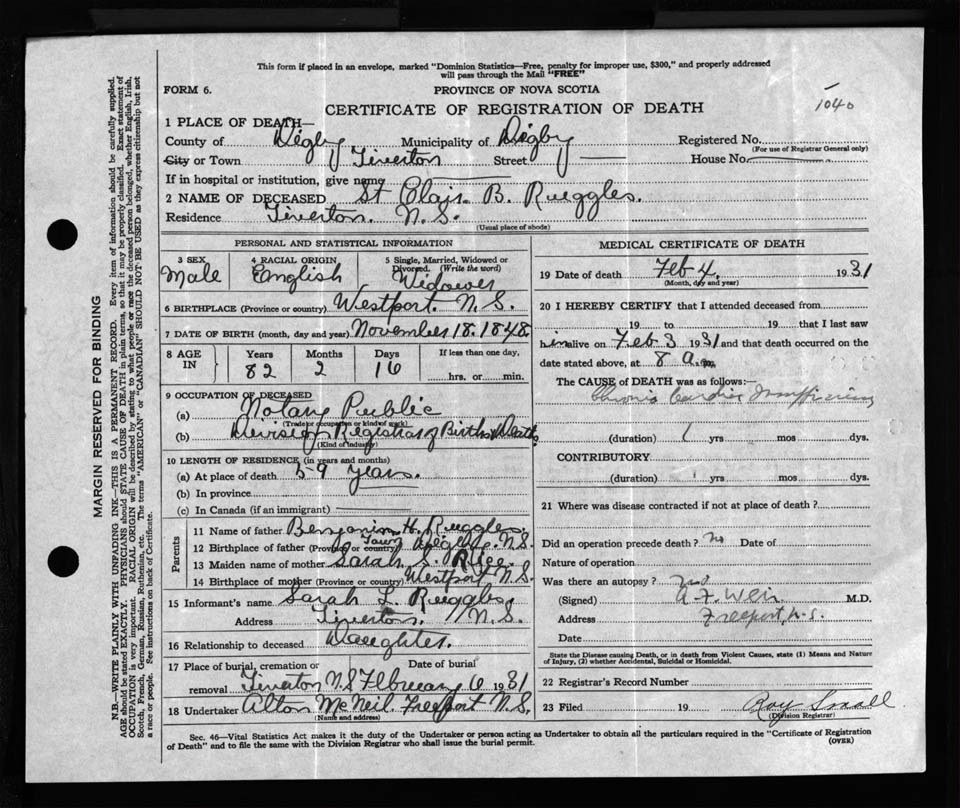 This form if placed in an envelope, marked "Dominion Statistics—Free, penalty for improper use, $300," and properly addressed
will pass through the Mail "FREE"
FORM 6.
PROVINCE OF NOVA SCOTIA
1040
CERTIFICATE OF REGISTRATION OF DEATH
1 PLACE OF DEATH—
County of Digby Municipality of Digby Registered No.
(For use of Registrar General only)
City or Town Tiverton Street — House No.
If in hospital or institution, give name
2 NAME OF DECEASED St Clair B. Rueggles.
Residence Tiverton. N.S.
(Usual place of abode)
PERSONAL AND STATISTICAL INFORMATION
3 SEX 4 RACIAL ORIGIN 5 Single, Married, Widowed or
Divorced. (Write the word)
Male English Widower
6 BIRTHPLACE (Province or country) Westport. N.S.
7 DATE OF BIRTH (month, day and year) November 18. 1848.
8 AGE IN Years Months Days If less than one day,
82 2 16 hrs. or min.
9 OCCUPATION OF DECEASED
(a) Notary Public
(Trade occupation or kind of work)
(b) Division Registrar of Births & Deaths
(Kind of industry)
10 LENGTH OF RESIDENCE (in years and months)
(a) At place of death 59 years.
(b) In province
(c) In Canada (if an immigrant)
Parents
11 Name of father Benjamin H. Rueggles.
12 Birthplace of father (Province or country) Town Digby. N.S.
13 Maiden name of mother Sarah S. Rice.
14 Birthplace of mother (Province or country) Westport, N.S.
15 Informant's name Sarah L. Rueggles.
Address Tiverton. N.S.
16 Relationship to deceased Daughter.
17 Place of burial, cremation or Date of burial
removal Tiverton N.S February 6 1931
18 Undertaker Alton McNeil Freeport N.S.
(Name and address)
MEDICAL CERTIFICATE OF DEATH
19 Date of death Feb 4, 1931
(Month, day and year)
20 I HEREBY CERTIFY that I attended deceased from
19 to 19 that I last saw
him alive on Feb 3 1931 and that death occurred on the
date stated above, at 8 a.m.
The CAUSE of DEATH was as follows:—
Chronic Cardiac Insufficiency
(duration) 1 yrs mos dys.
CONTRIBUTORY
(duration) yrs mos dys.
21 Where was disease contracted if not at place of death?
Did an operation precede death? no Date of
Nature of operation
Was there an autopsy? no
(Signed) A.F. Weir M.D.
Address Freeport, N.S.
Date
State the Disease causing Death, or in death from Violent Causes, state (1) Means and Nature
of Injury, (2) whether Accidental, Suicidal or Homicidal.
22 Registrar's Record Number
23 Filed 19 Roy Small
(Division Registrar)
Sec. 46—Vital Statistics Act makes it the duty of the Undertaker or person acting as Undertaker to obtain all the particulars required in the "Certificate of Registration
of Death" and to file the same with the Division Registrar who shall issue the burial permit.
(OVER)
MARGIN RESERVED FOR BINDING
N.B.—WRITE PLAINLY WITH UNFADING INK—THIS IS A PERMANENT RECORD. Every item of information should be carefully supplied.
AGE should be stated EXACTLY. PHYSICIANS should STATE CAUSE OF DEATH in plain terms, so that it may be properly classified. Exact statement of
OCCUPATION is very important. RACIAL ORIGIN will be described by stating to what people or race the deceased person belonged, whether English, Irish,
Scotch, French, German, Russian, Ruthenian, etc. The terms "AMERICAN" or "CANADIAN" SHOULD NOT BE USED as they express citizenship but not
a race or people. See instructions on back of Certificate.